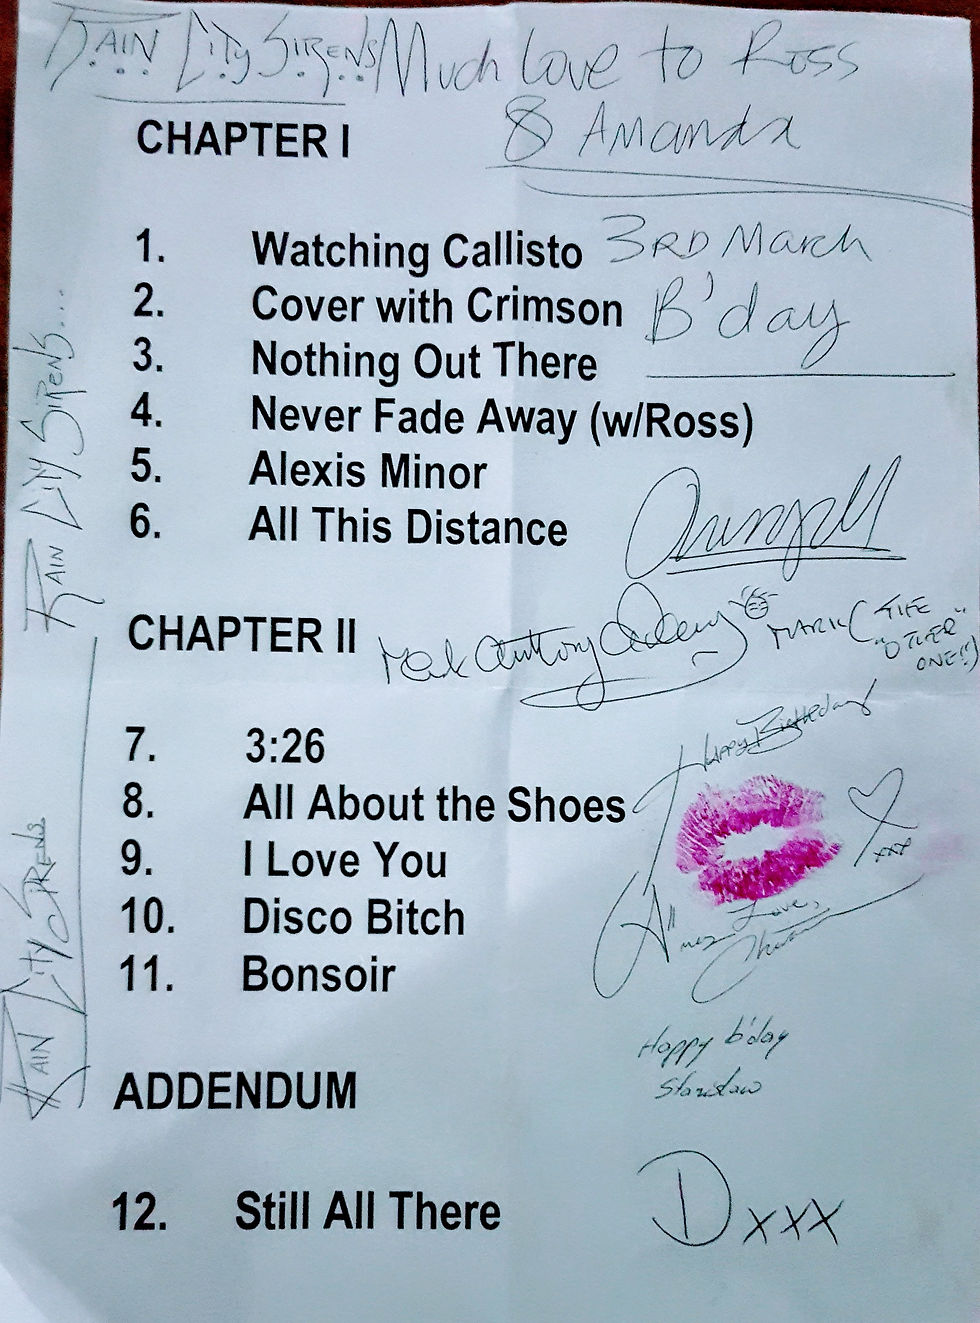 RAIN CITY SIRENS Much Love to Ross
& Amanda
CHAPTER I
1. Watching Callisto 3RD March
2. Cover with Crimson B'day
3. Nothing Out There
4. Never Fade Away (w/Ross)
5. Alexis Minor
6. All This Distance
RAIN CITY SIRENS...
CHAPTER II
Mark Anthony
MARK (THE
"OTHER"
ONE!!)
Happy Birthday
7. 3:26
8. All About the Shoes
xxx
9. I Love You
10. Disco Bitch
Love,
11. Bonsoir
RAIN CITY SIRENS
Happy b'day
Stanislaw
ADDENDUM
12. Still All There
D xxx